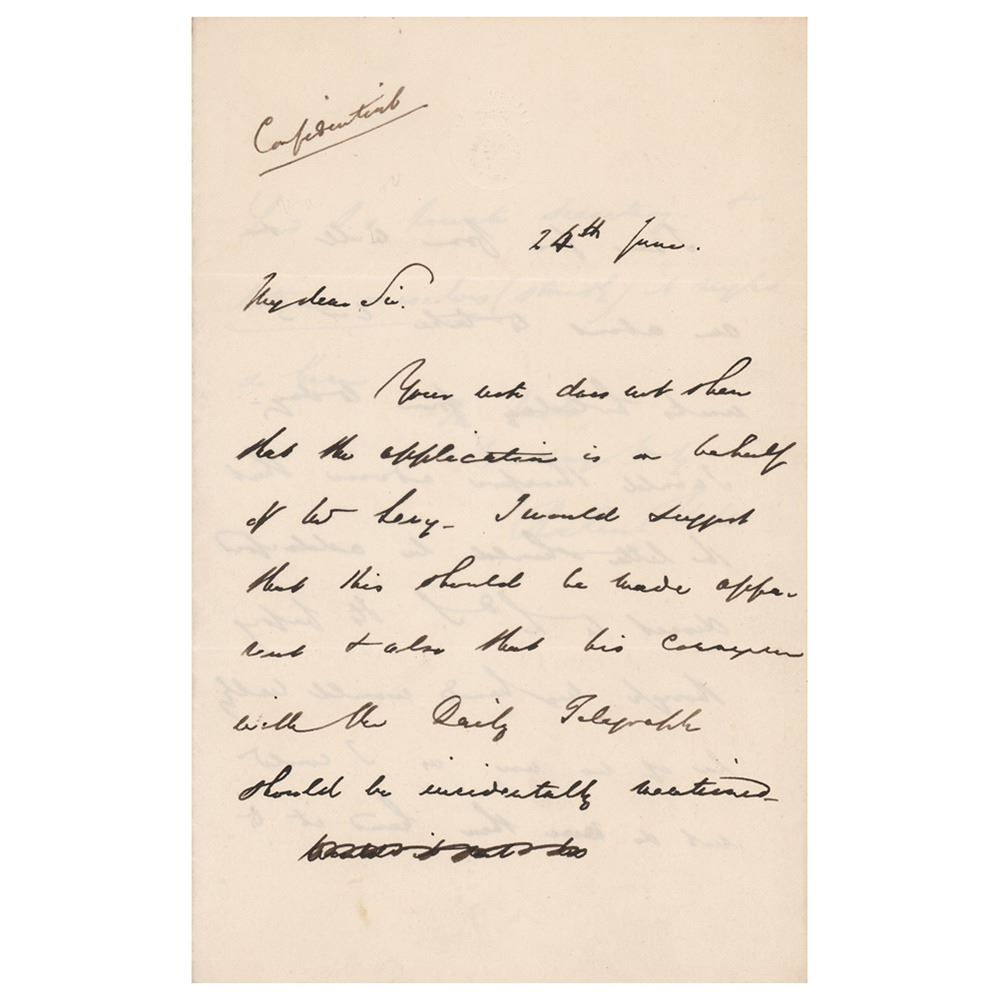 Confidential
24th June.
My dear Sir.
Your note does not shew
that the application is on behalf
of Mr Levy - I would suggest
that this should be made appa-
rent & also that his
with the Daily Telegraph
should be incidentally mentioned -